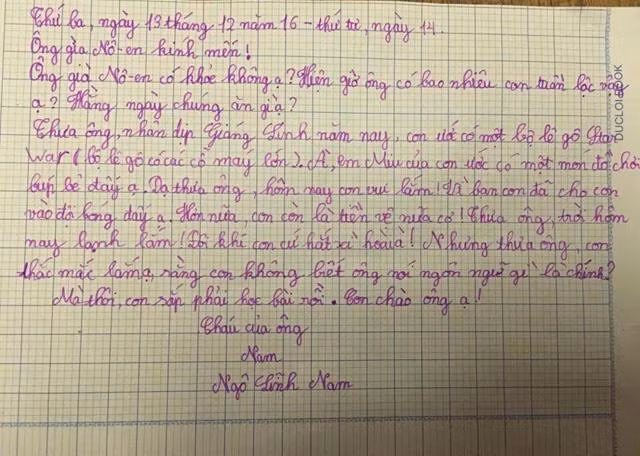 Thứ ba, ngày 13 tháng 12 năm 16 - thứ tư, ngày 14.
Ông già Nô-en kính mến!
Ông già Nô-en có khoẻ không ạ? Hiện giờ ông có bao nhiêu con tuần lộc vậy
ạ? Hằng ngày chúng ăn gì ạ?
Thưa ông, nhân dịp Giáng Sinh năm nay, con ước có một bộ lê gô Star
War (bộ lê gô có các cỗ máy lớn). À, em Miu của con ước có một món đồ chơi
búp bê đấy ạ. Dạ thưa ông, hôm nay con vui lắm! Vì bạn con đã cho con
vào đội bóng đấy ạ. Hơn nữa, con còn là tiền vệ nữa cơ! Thưa ông, trời hôm
nay lạnh lắm! Đôi khi con cứ hắt xì hoài à! Nhưng thưa ông, con
thắc mắc lắm ạ, rằng con không biết ông nói ngôn ngữ gì là chính?
Mà thôi, con sắp phải học bài rồi. Con chào ông ạ!
Cháu của ông
Nam
Ngô Nam
DUCLOIBOOK